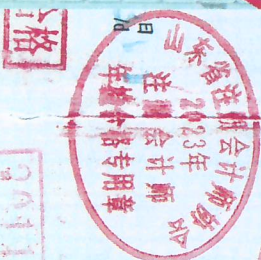 山东省注册会计师协会
2023年
注册会计师
年检合格专用章
合格
月